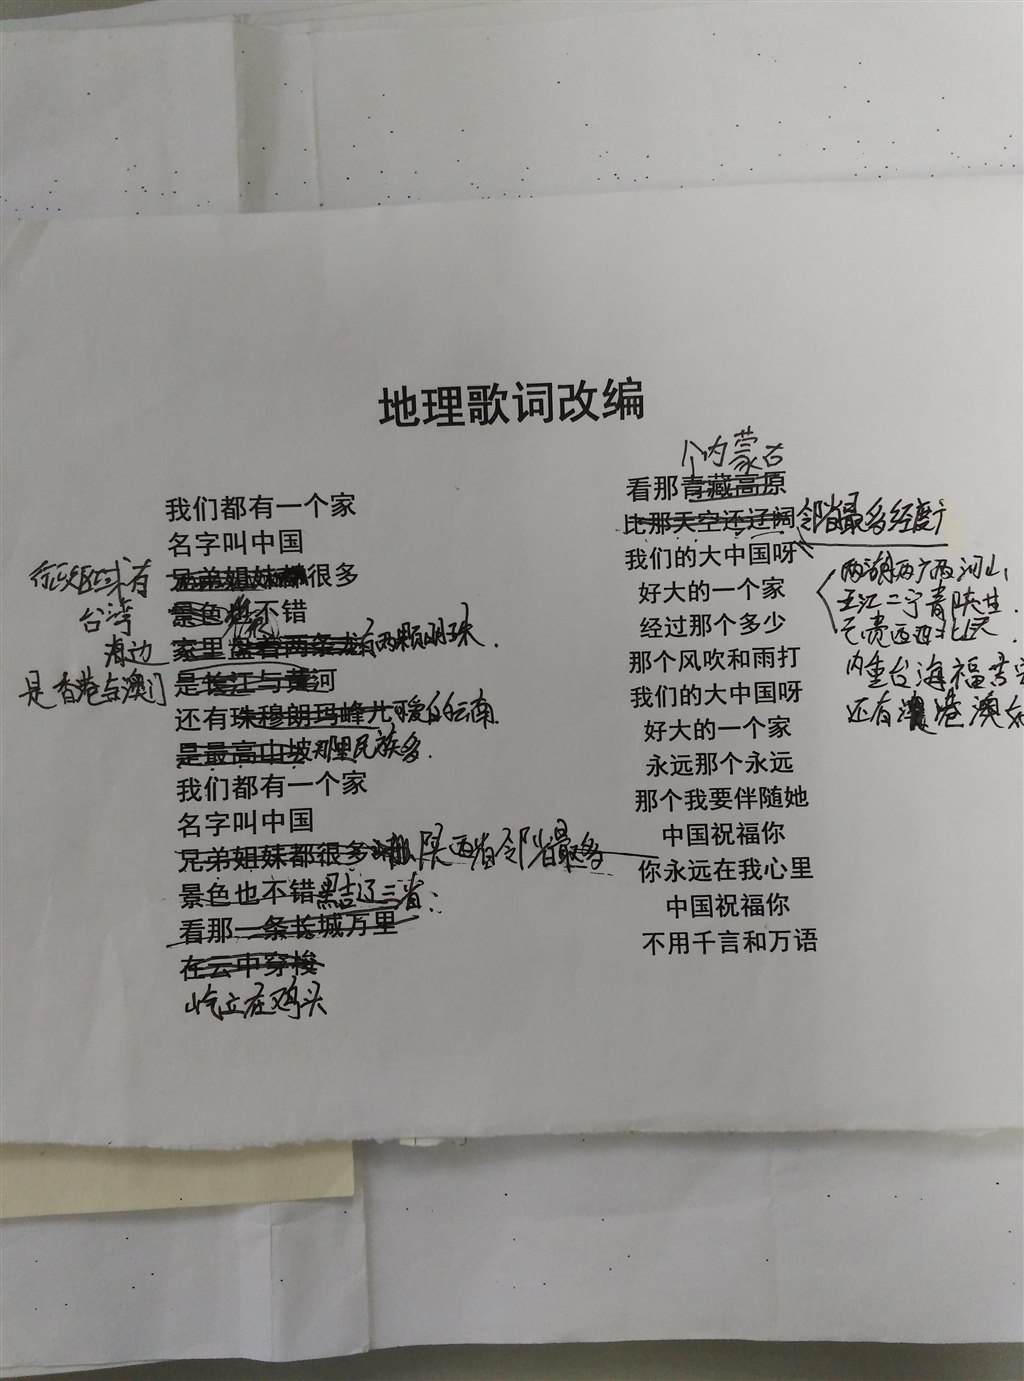 地理歌词改编
我们都有一个家
名字叫中国
兄弟姐妹都很多
行政区域有
景色也不错
台湾
海边
家里盘着两条龙有两颗明珠.
是长江与黄河
是香港与澳门
还有珠穆朗玛峰儿可爱的云南.
是最高山坡那里民族多.
我们都有一个家
名字叫中国
兄弟姐妹都很多 陕西省邻省最多
景色也不错黑吉辽三省:
看那一条长城万里
在云中穿梭
屹立在鸡头
个内蒙古
看那青藏高原
比那天空还辽阔邻省最多经度广
我们的大中国呀
好大的一个家
经过那个多少
那个风吹和雨打
我们的大中国呀
好大的一个家
永远那个永远
那个我要伴随她
中国祝福你
你永远在我心里
中国祝福你
不用千言和万语
两湖两广两河山
五江二宁青陕甘
云贵西四北天
内重台海福吉安
还有港澳